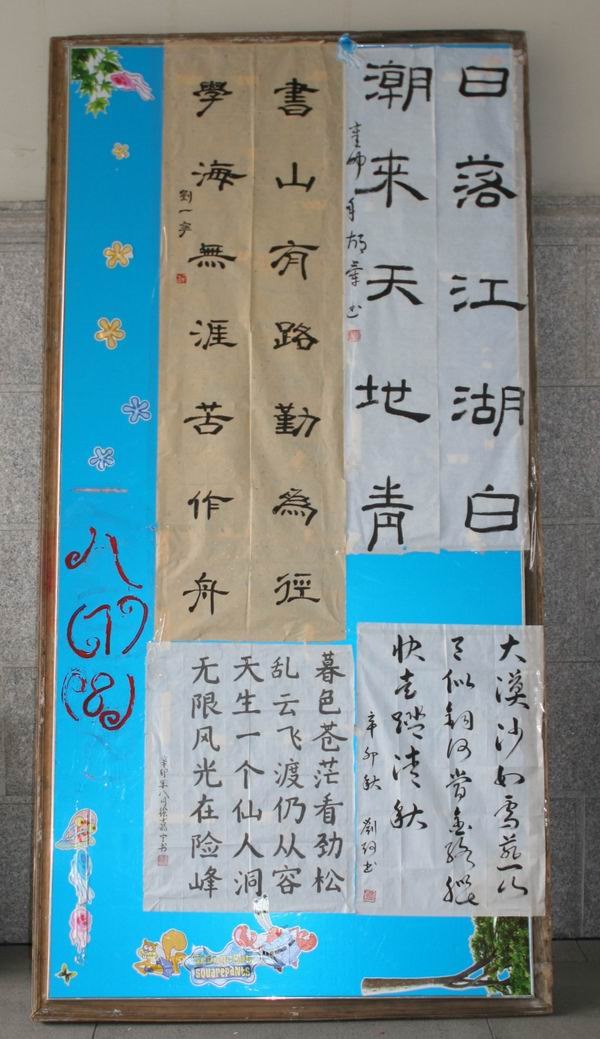 日落江湖白
潮來天地青
書山有路勤為徑
學海無涯苦作舟
劉一
大漠沙如雪燕山
月似鉤何當金絡腦
快走踏清秋
辛卯秋 劉
暮色苍茫看劲松
乱云飞渡仍从容
天生一个仙人洞
无限风光在险峰
八
(7)
(8)
SQUAREPANTS